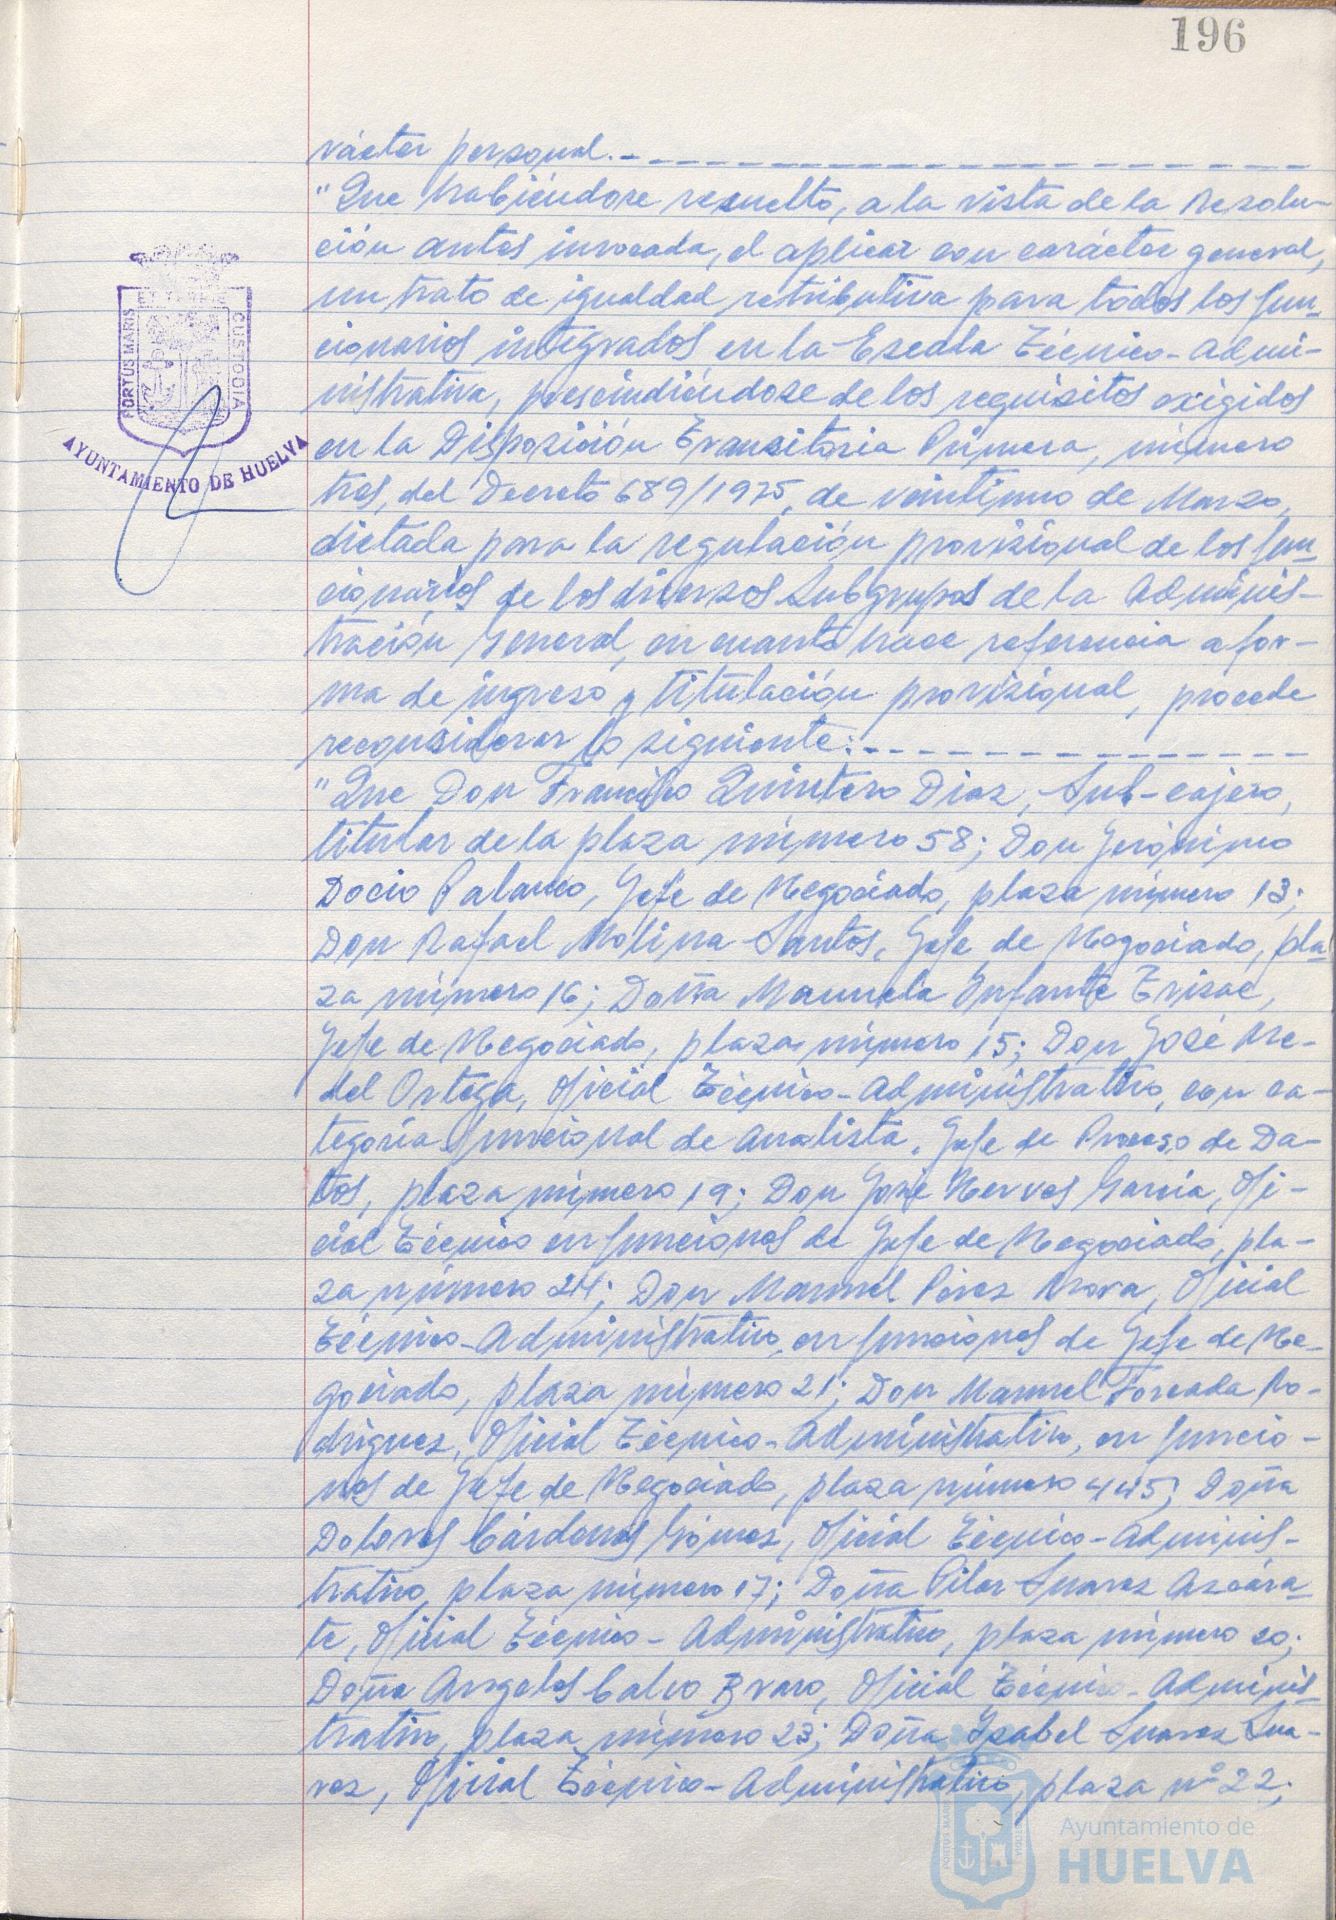 196
rácter personal.
"Que habiéndose resuelto, a la vista de la Resolu-
ción antes invocada, el aplicar con carácter general,
un trato de igualdad retributiva para todos los fun-
cionarios integrados en la Escala Técnico-Admi-
nistrativa, prescindiéndose de los requisitos exigidos
en la Disposición Transitoria Primera, número
tres, del Decreto 689/1975, de veintiuno de Marzo,
dictada para la regulación provisional de los fun-
cionarios de los diversos Subgrupos de la Adminis-
tración General, en cuanto hace referencia a for-
ma de ingreso y titulación provisional, procede
reconsiderar lo siguiente:
"Que Don Francisco Quintero Diaz, Sub-cajero,
titular de la plaza número 58; Don Jerónimo
Docio Palanco, Jefe de Negociado, plaza número 13;
Don Rafael Molina Santos, Jefe de Negociado, pla-
za número 16; Doña Manuela Infante Trisac,
Jefe de Negociado, plaza número 15; Don José Re-
del Ortega, Oficial Técnico-Administrativo, con ca-
tegoría funcional de Analista, Jefe de Proceso de Da-
tos, plaza número 19; Don José Nerves García, Ofi-
cial Técnico en funciones de Jefe de Negociado, pla-
za número 24; Don Manuel Pérez Mora, Oficial
Técnico-Administrativo, en funciones de Jefe de Ne-
gociado, plaza número 21; Don Manuel Forcada Ro-
driguez, Oficial Técnico-Administrativo, en funcio-
nes de Jefe de Negociado, plaza número 445; Doña
Dolores Cárdenas Gómez, Oficial Técnico-Adminis-
trativo, plaza número 17; Doña Pilar Suarez Azcára-
te, Oficial Técnico-Administrativo, plaza número 20;
Doña Angeles Calvo Bravo, Oficial Técnico-Adminis-
trativo, plaza número 23; Doña Isabel Suarez Sua-
rez, Oficial Técnico-Administrativo, plaza nº 22;
PORTUS MARIS
ET TERRE
CUSTODIA
AYUNTAMIENTO DE HUELVA
Ayuntamiento de
HUELVA